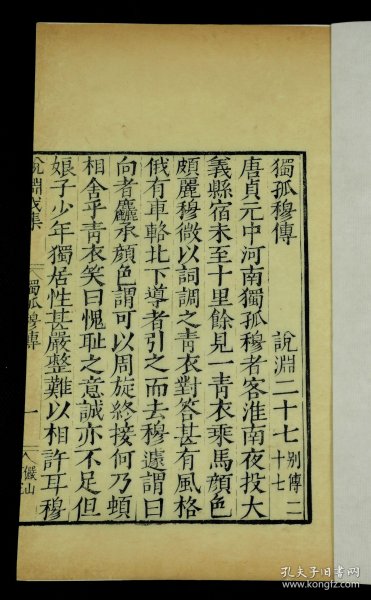 獨孤穆傳 說淵二十七 別傳二十七
唐貞元中河南獨孤穆者客淮南夜投大
義縣宿未至十里餘見一青衣乘馬顏色
頗麗穆微以詞調之青衣對答甚有風格
俄有車輅北下導者引之而去穆遽謂曰
向者麤承顏色謂可以周旋終接何乃頓
相舍乎青衣笑曰愧耻之意誠亦不足但
娘子少年獨居性甚嚴整難以相許耳穆
說淵戊集 獨孤穆傳 一 儼山
孔夫子旧书网
www.kongfz.com